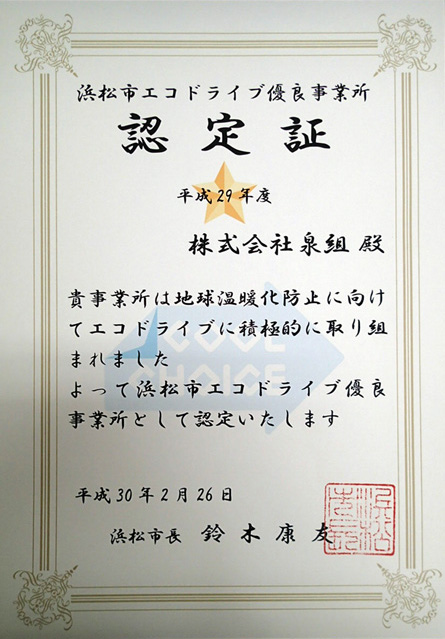 浜松市エコドライブ優良事業所
認定証
平成29年度
株式会社泉組 殿
貴事業所は地球温暖化防止に向け
てエコドライブに積極的に取り組
まれました
COOL
CHOICE
よって浜松市エコドライブ優良
事業所として認定いたします
平成30年2月26日
浜松市長 鈴木康友
浜松市長